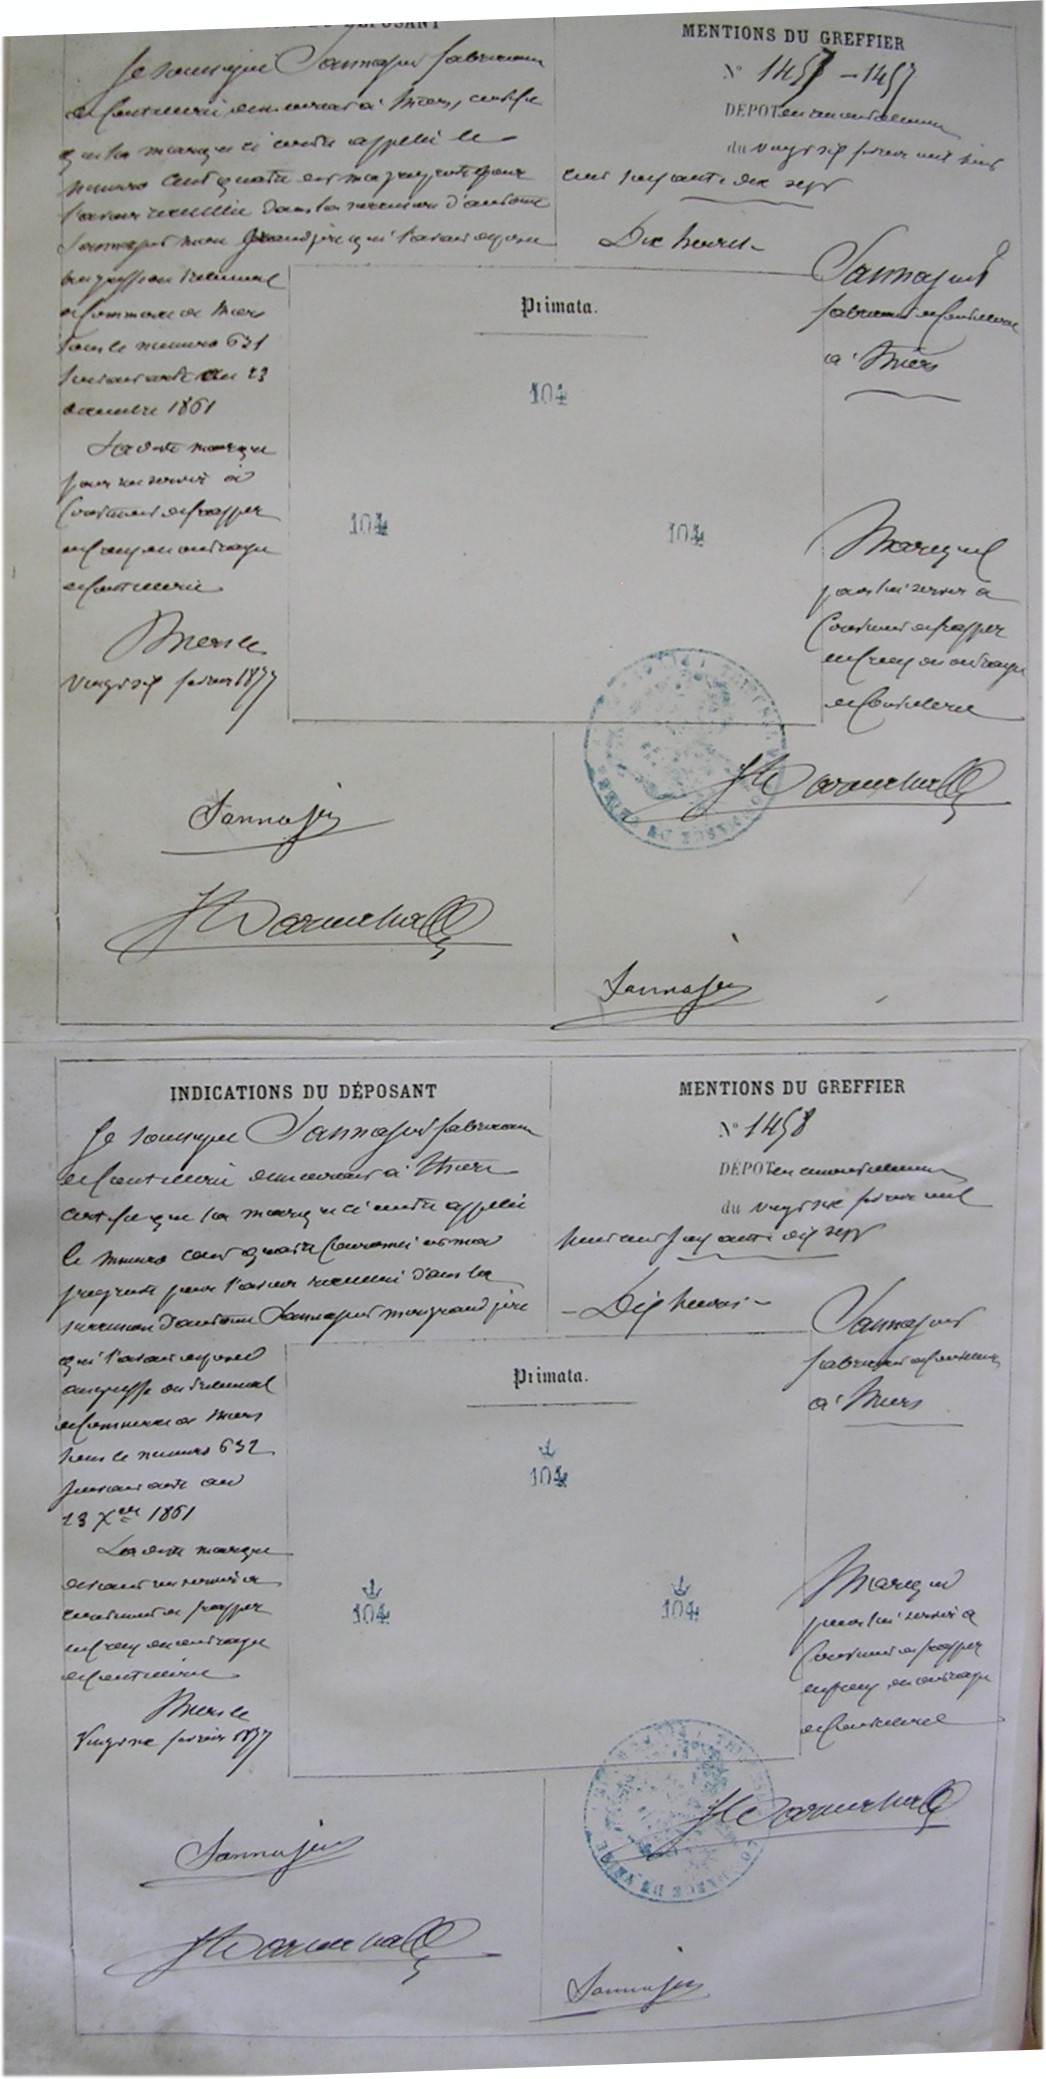 DU DÉPOSANT
Je soussigné Sannajust fabricant
de Coutellerie demeurant à Thiers, certifie
que la marque ci contre appelée le
numero cent quatre est ma propriété pour
l'avoir recueillie dans la succession d'antoine
Sannajust mon Grand père qui l'avait déposée
au greffe du tribunal
de Commerce de Thiers
sous le numero 631
suivant acte du 23
decembre 1861
La dite marque
pour me servir à
Continuer de frapper
en creux du ouvrages
de Coutellerie
Thiers le
vingt six fevrier 1877
Sannajust
MENTIONS DU GREFFIER
N° 1457 - 1457
DÉPOT
du vingt six fevrier mil huit
cent soixante dix sept
Dix heures
Sannajust
fabricant de Coutellerie
à Thiers
Primata.
104
104 104
Marque
pour lui servir à
Continuer de frapper
en creux du ouvrages
de Coutellerie
Sannajust
INDICATIONS DU DÉPOSANT
Je soussigné Sannajust fabricant
de Coutellerie demeurant à Thiers
certifie que la marque ci contre appelée
le numero cent quatre Couronné est ma
propriété pour l'avoir recueilli dans la
succession d'antoine Sannajust mon grand père
qui l'avait déposé
au greffe du tribunal
de Commerce de Thiers
sous le numero 632
suivant acte du
23 Xbre 1861
La dite marque
devant me servir à
continuer de frapper
en creux du ouvrages
de Coutellerie
Thiers le
Vingt six fevrier 1877
Sannajust
MENTIONS DU GREFFIER
N° 1458
DÉPOT
du vingt six fevrier mil
huit cent soixante dix sept
- Dix heures -
Sannajust
fabricant de Coutellerie
à Thiers
Primata.
104
104 104
Marque
pour lui servir à
Continuer de frapper
en creux du ouvrages
de Coutellerie
Sannajust